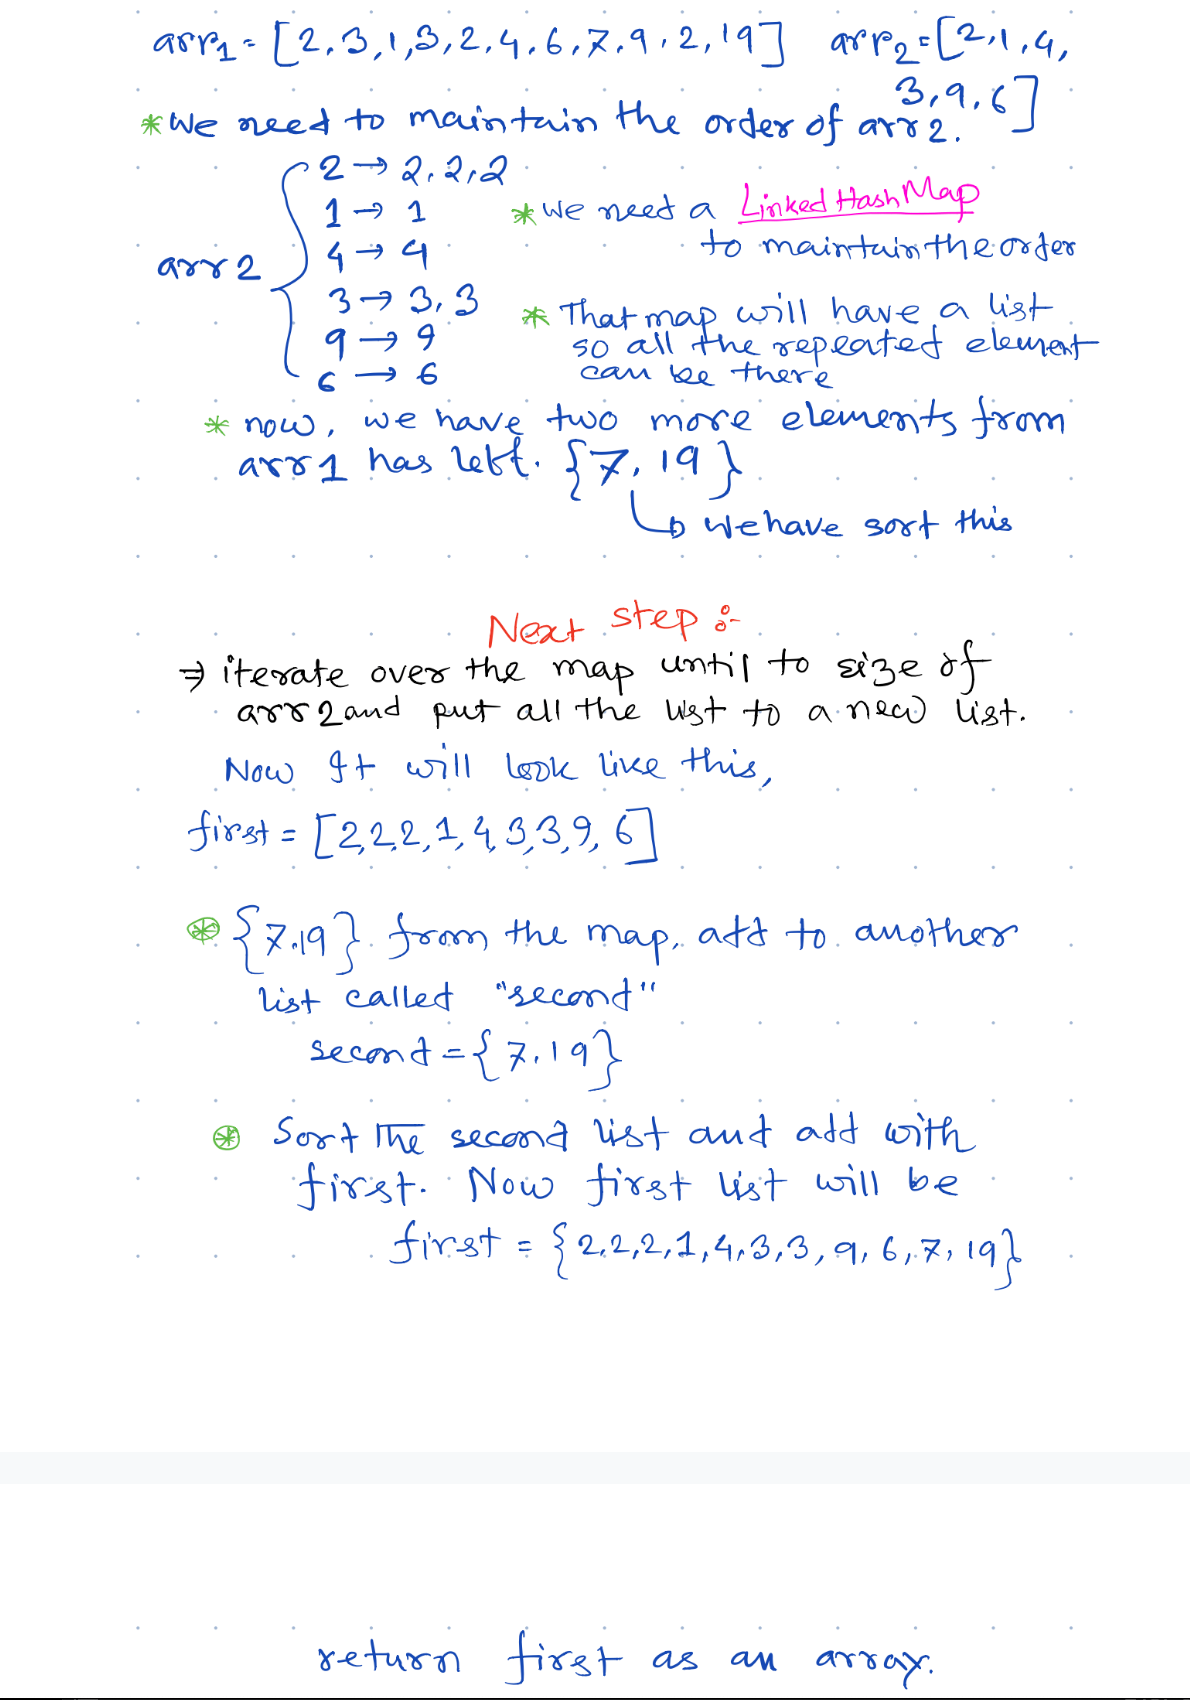 arr1 = [2,3,1,3,2,4,6,7,9,2,19] arr2 = [2,1,4,
3,9,6]
* We need to maintain the order of arr2.
2 → 2,2,2
1 → 1
* We need a LinkedHashMap
to maintain the order
arr2
4 → 4
3 → 3,3
* That map will have a list
9 → 9
so all the repeated element
6 → 6
can be there
* now, we have two more elements from
arr1 has left. {7,19}
↳ We have sort this
Next step :-
⇒ iterate over the map until to size of
arr2 and put all the list to a new list.
Now It will look like this,
first = [2,2,2,1,4,3,3,9,6]
* {7,19} from the map, add to another
list called "second"
second = {7,19}
* Sort The second list and add with
first. Now first list will be
first = {2,2,2,1,4,3,3,9,6,7,19}
return first as an array.